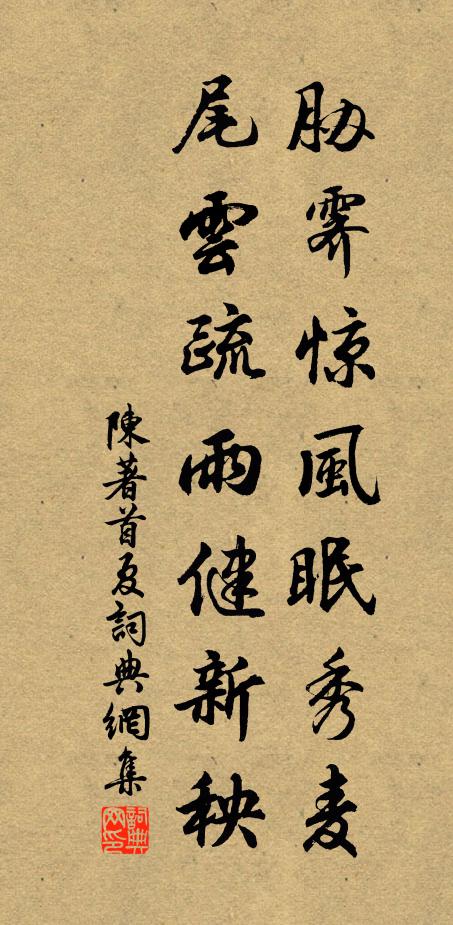 胁霁惊風眠秀麦
尾雲疏雨健新秧
陳著首夏詞典網集
詞典網印